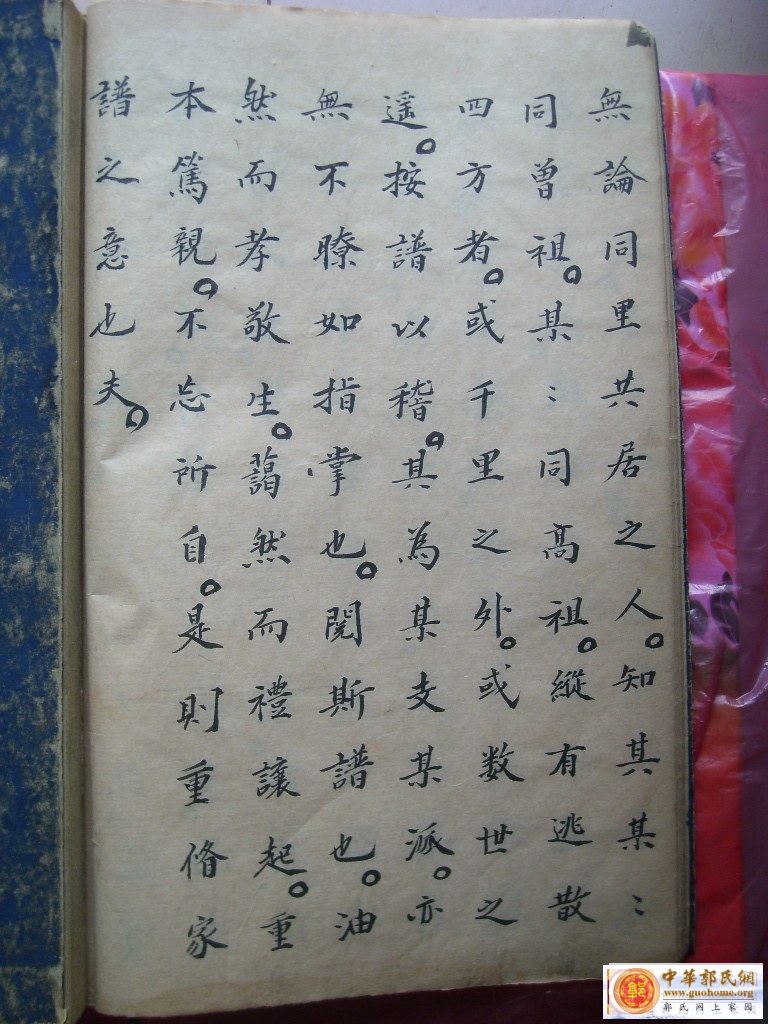 無論同里共居之人。知其某〻
同曾祖。某〻同高祖。縱有逃散
四方者。或千里之外。或数世之
遥。按譜以稽。其為某支某派。亦
無不瞭如指掌也。閱斯譜也。油
然而孝敬生。藹然而禮讓起。重
本篤親。不忘所自。是則重脩家
譜之意也夫。
中華郭氏網
www.guohome.org
郭氏网上家园